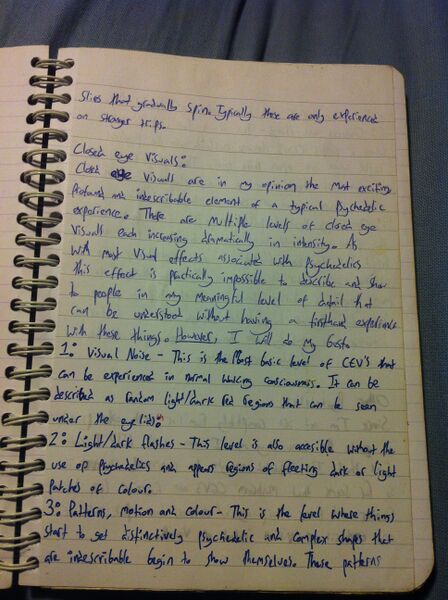 slies that gradually spin. Typically these are only experienced
on stronger trips.
Closed eye visuals:
Closed eye visuals are in my opinion the most exciting
profound and indescribable element of a typical psychedelic
experience. There are multiple levels of closed eye
visuals each increasing dramatically in intensity. As
with most visual effects associated with psychedelics
this effect is practically impossible to describe and show
to people in any meaningful level of detail that
can be understood without having a firsthand experience
with these things. However, I will do my best.
1: Visual Noise - This is the most basic level of CEV's that
can be experienced in normal waking consciousness. It can be
described as random light/dark red regions that can be seen
under the eye lids.
2: Light/dark flashes - This level is also accesible without the
use of psychedelics and appears regions of fleeting dark or light
patches of colour.
3: Patterns, motion and colour - This is the level where things
start to get distinctively psychedelic and complex shapes that
are indescribable begin to show themselves. These patterns